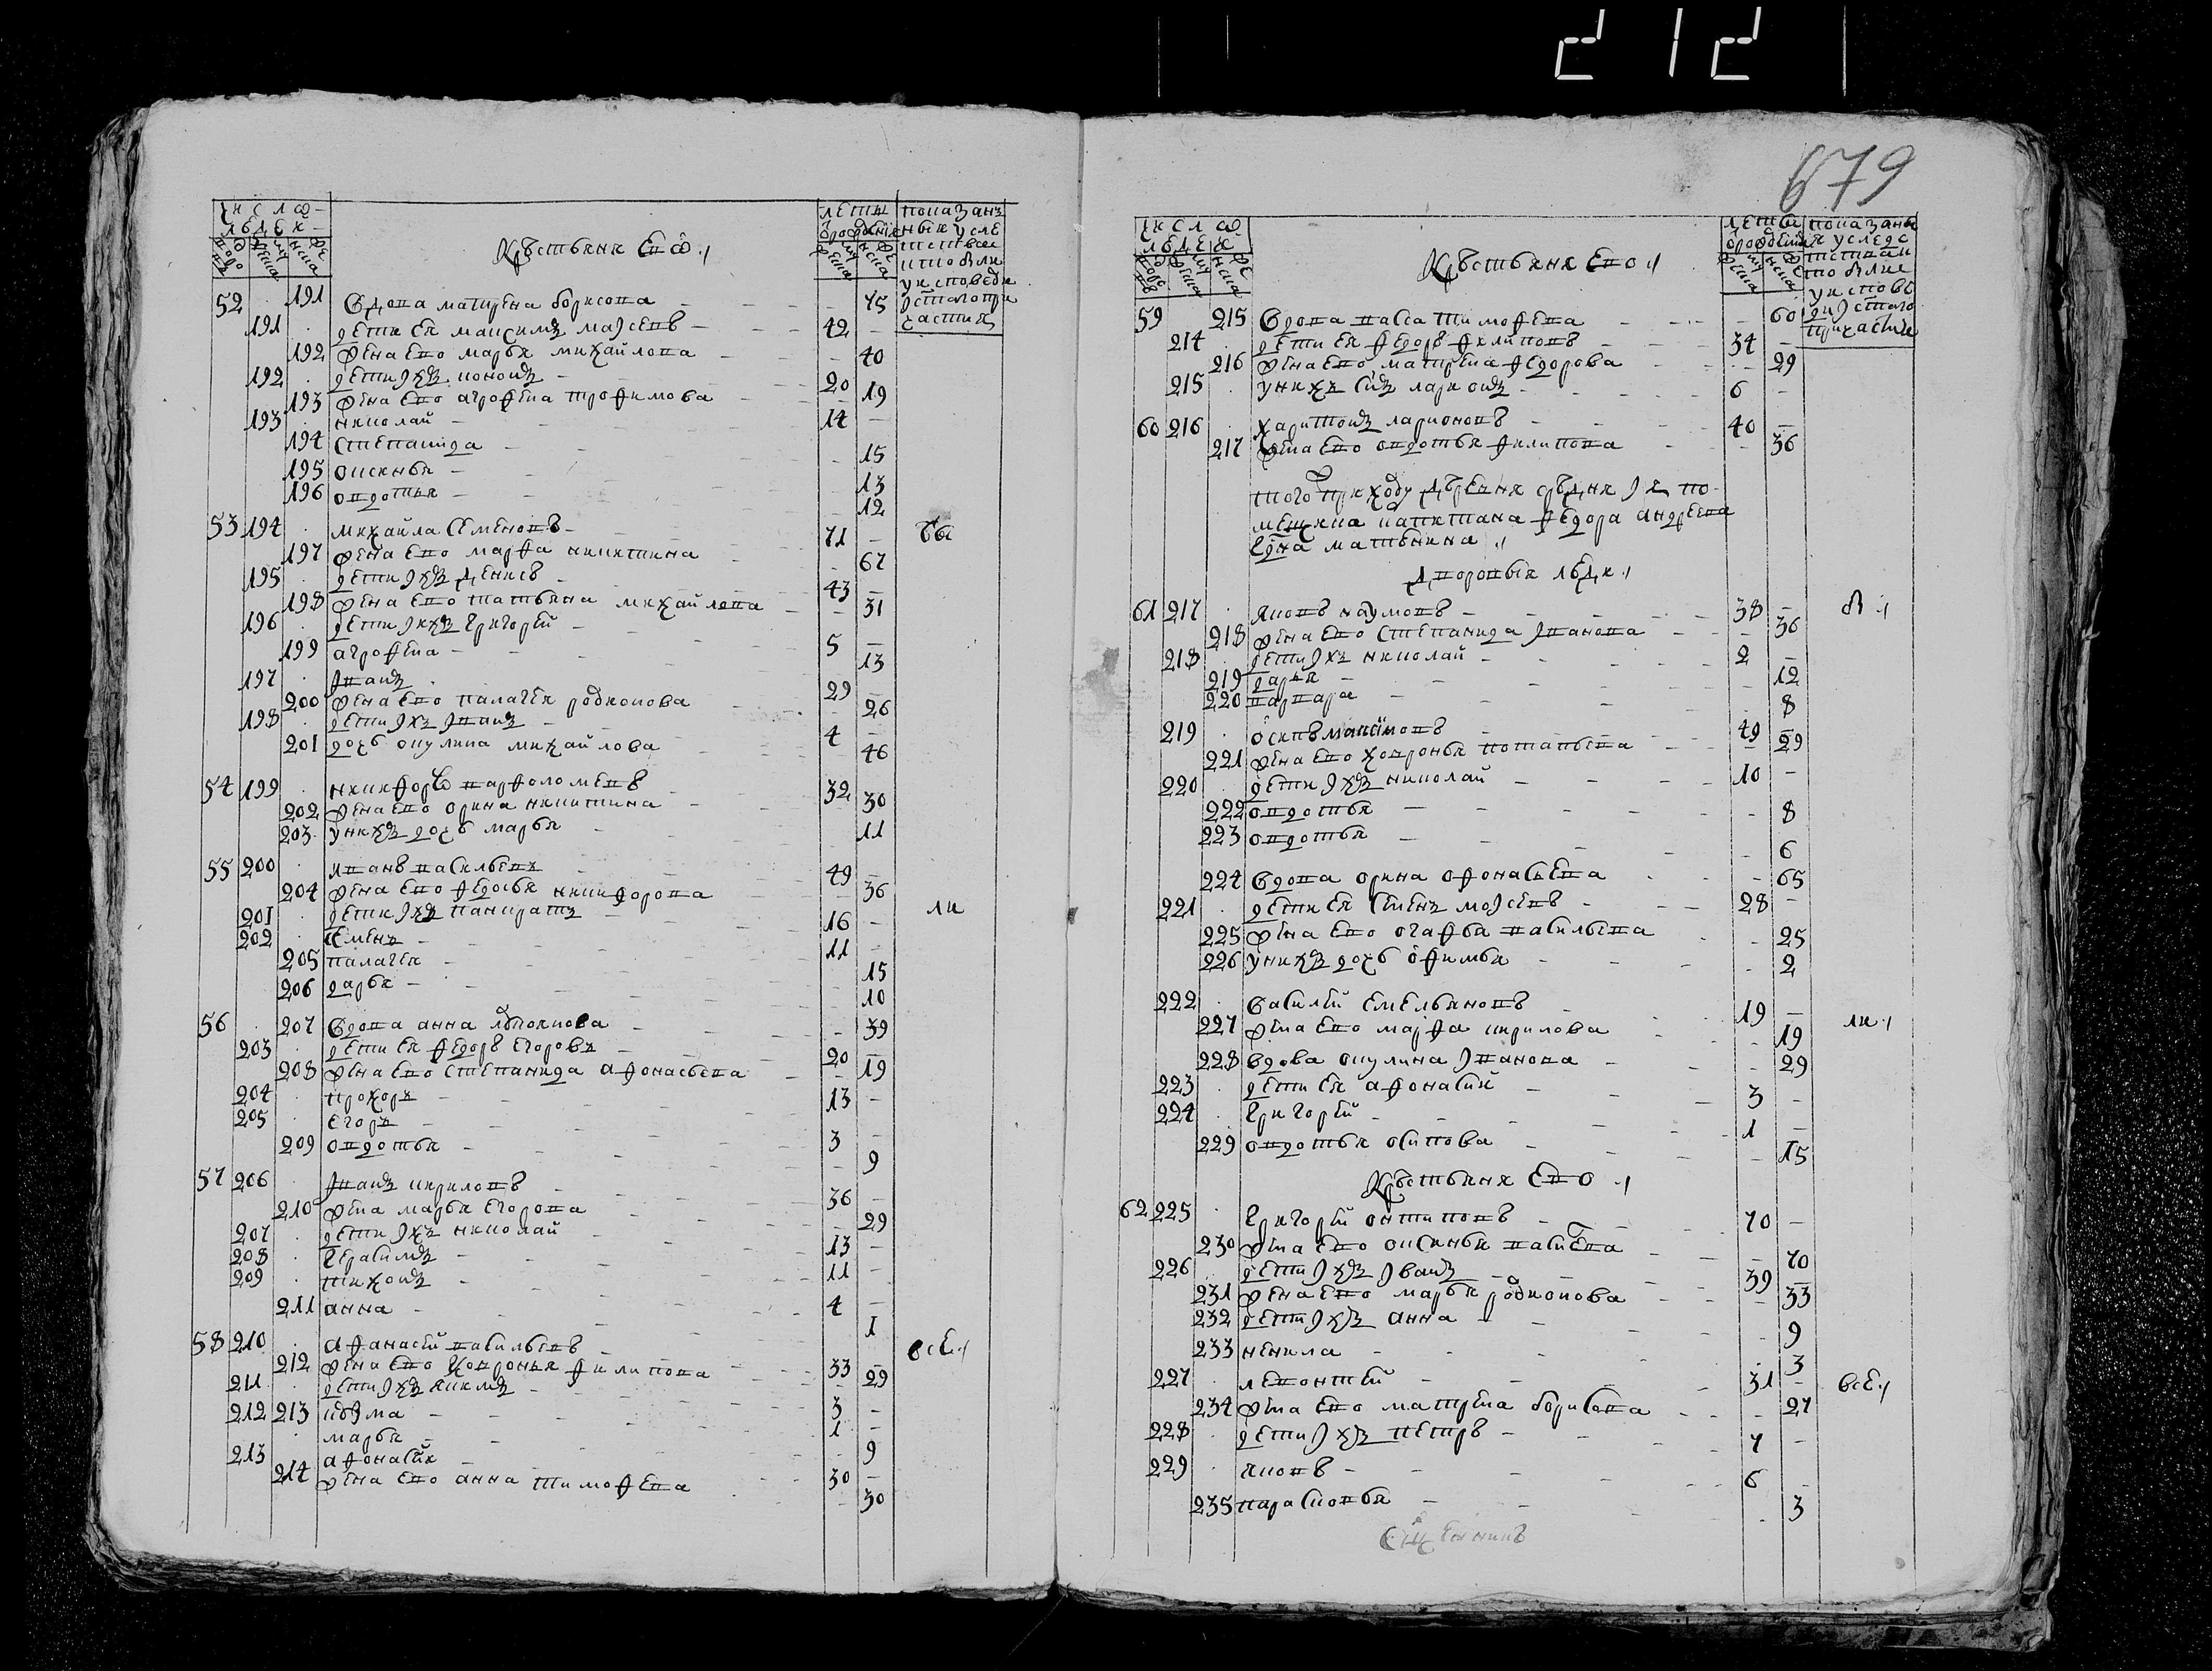 212
679
числа людей
Крестьяне Ево
лета от рождения
показание кто был у исповеди и святого причастия
52 191 Вдова матрена борисова 75
191 дети ея максимъ моисеевъ 42
192 жена ево марья михайлова 40
192 дети ихъ кононъ 20
193 жена ево агрофена трофимова 19
193 николай 14
194 степанида 15
195 оксинья 13
196 овдотья 12
53 194 михайла семеновъ 71 бы
197 жена ево марфа никитина 67
195 дети ихъ денисъ 43
198 жена ево татьяна михайлова 31
196 дети ихъ григорей 5
199 агрофена 13
197 иванъ 29
200 жена ево палагея родионова 26
198 дети ихъ иванъ 4
201 дочь окулина михайлова 46
54 199 никифоръ варфоломеевъ 32
202 жена ево орина никитина 30
203 у нихъ дочь марья 11
55 200 иванъ васильевъ 49
204 жена ево федосья никифорова 36
201 дети ихъ панкратъ 16 ли
202 семенъ 11
205 палагея 15
206 дарья 10
56 207 Вдова анна 39
203 дети ея федоръ егоровъ 20
208 жена ево степанида афонасьева 19
204 прохоръ 13
205 егоръ 3
209 овдотья 9
57 206 иванъ кириловъ 36
210 жена марья егорова 29
207 дети ихъ николай 13
208 герасимъ 11
209 тихонъ 4
211 анна 1
58 210 афанасей васильевъ 33 всѣ
212 жена ево ховронья филипова 29
211 дети ихъ якимъ 3
212 213 козма 1
марья 9
213 афонасей 30
214 жена ево анна тимофева 30
числа людей
Крестьяне ево
лета от рождения
59 215 Вдова васса тимофева 60
214 дети ея федоръ филиповъ 34
216 жена ево матрена федорова 29
215 у нихъ сынъ ларионъ 6
60 216 харитонъ ларионовъ 40
217 жена ево овдотья филипова 36
того приходу деревня средняя по
мещика капитана федора андреева
сына матюнина
дворовыя люди
61 217 яковъ наумовъ 38 бы
218 жена ево степанида иванова 36
218 дети ихъ николай 2
219 дарья 12
220 варвара 8
219 осипъ максимовъ 49
221 жена ево ховронья потапьева 29
220 дети ихъ николай 10
222 овдотья 8
223 овдотья 6
224 Вдова орина офонасьева 65
221 дети ея семенъ моисеевъ 28
225 жена ево огафья васильева 25
226 у нихъ дочь офимья 2
222 василей емельяновъ 19
227 жена ево марфа кирилова 19 ли
228 вдова окулина иванова 29
223 дети ея афонасей 3
224 григорей 1
229 овдотья осипова 15
Крестьяне ево
62 225 григорей онтиповъ 70
230 жена ево оксинья 70
226 дети ихъ иванъ 39
231 жена ево марья родионова 33
232 дети ихъ анна 9
233 ненила 3
227 леонтей 31 всѣ
234 жена ево матрена борисова 27
228 дети ихъ петръ 7
229 яковъ 6
235 парасковья 3
священникъ